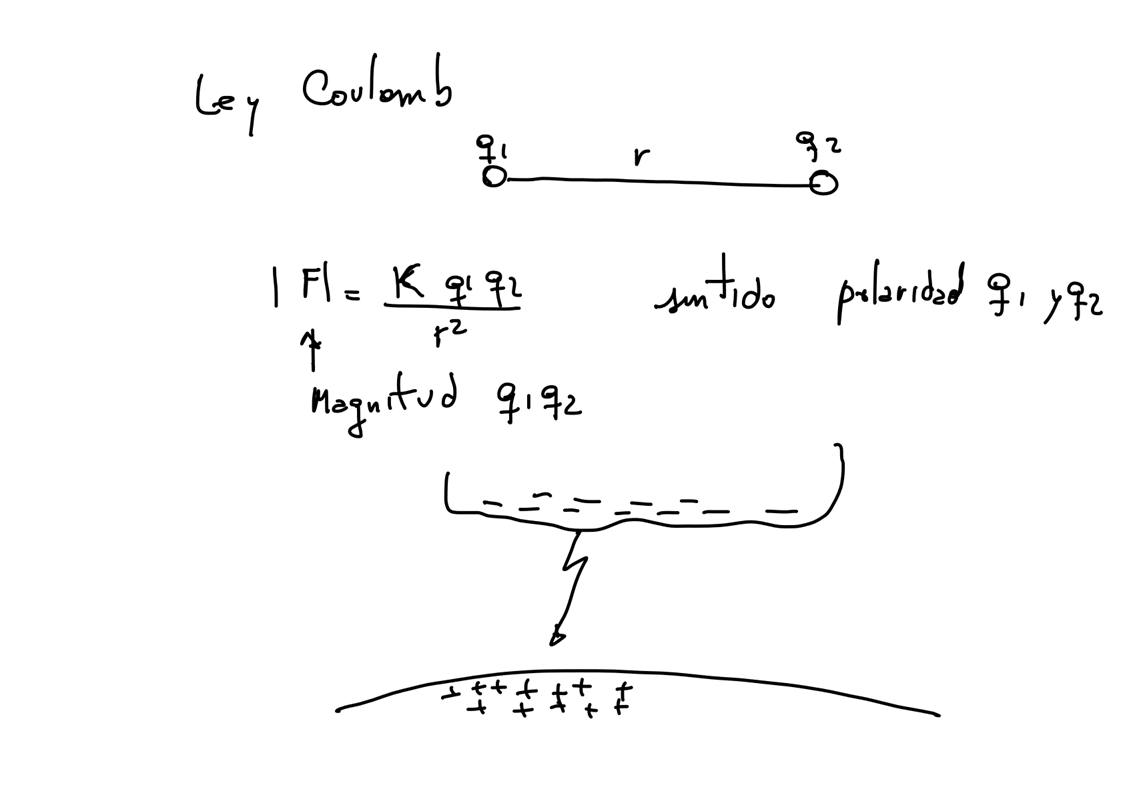 Ley Coulomb
q1 r q2
|F| = K q1 q2 / r²
sentido polaridad q1 y q2
Magnitud q1 q2
- - - - - - - - - - -
+ + + + + + +
+ + + + +